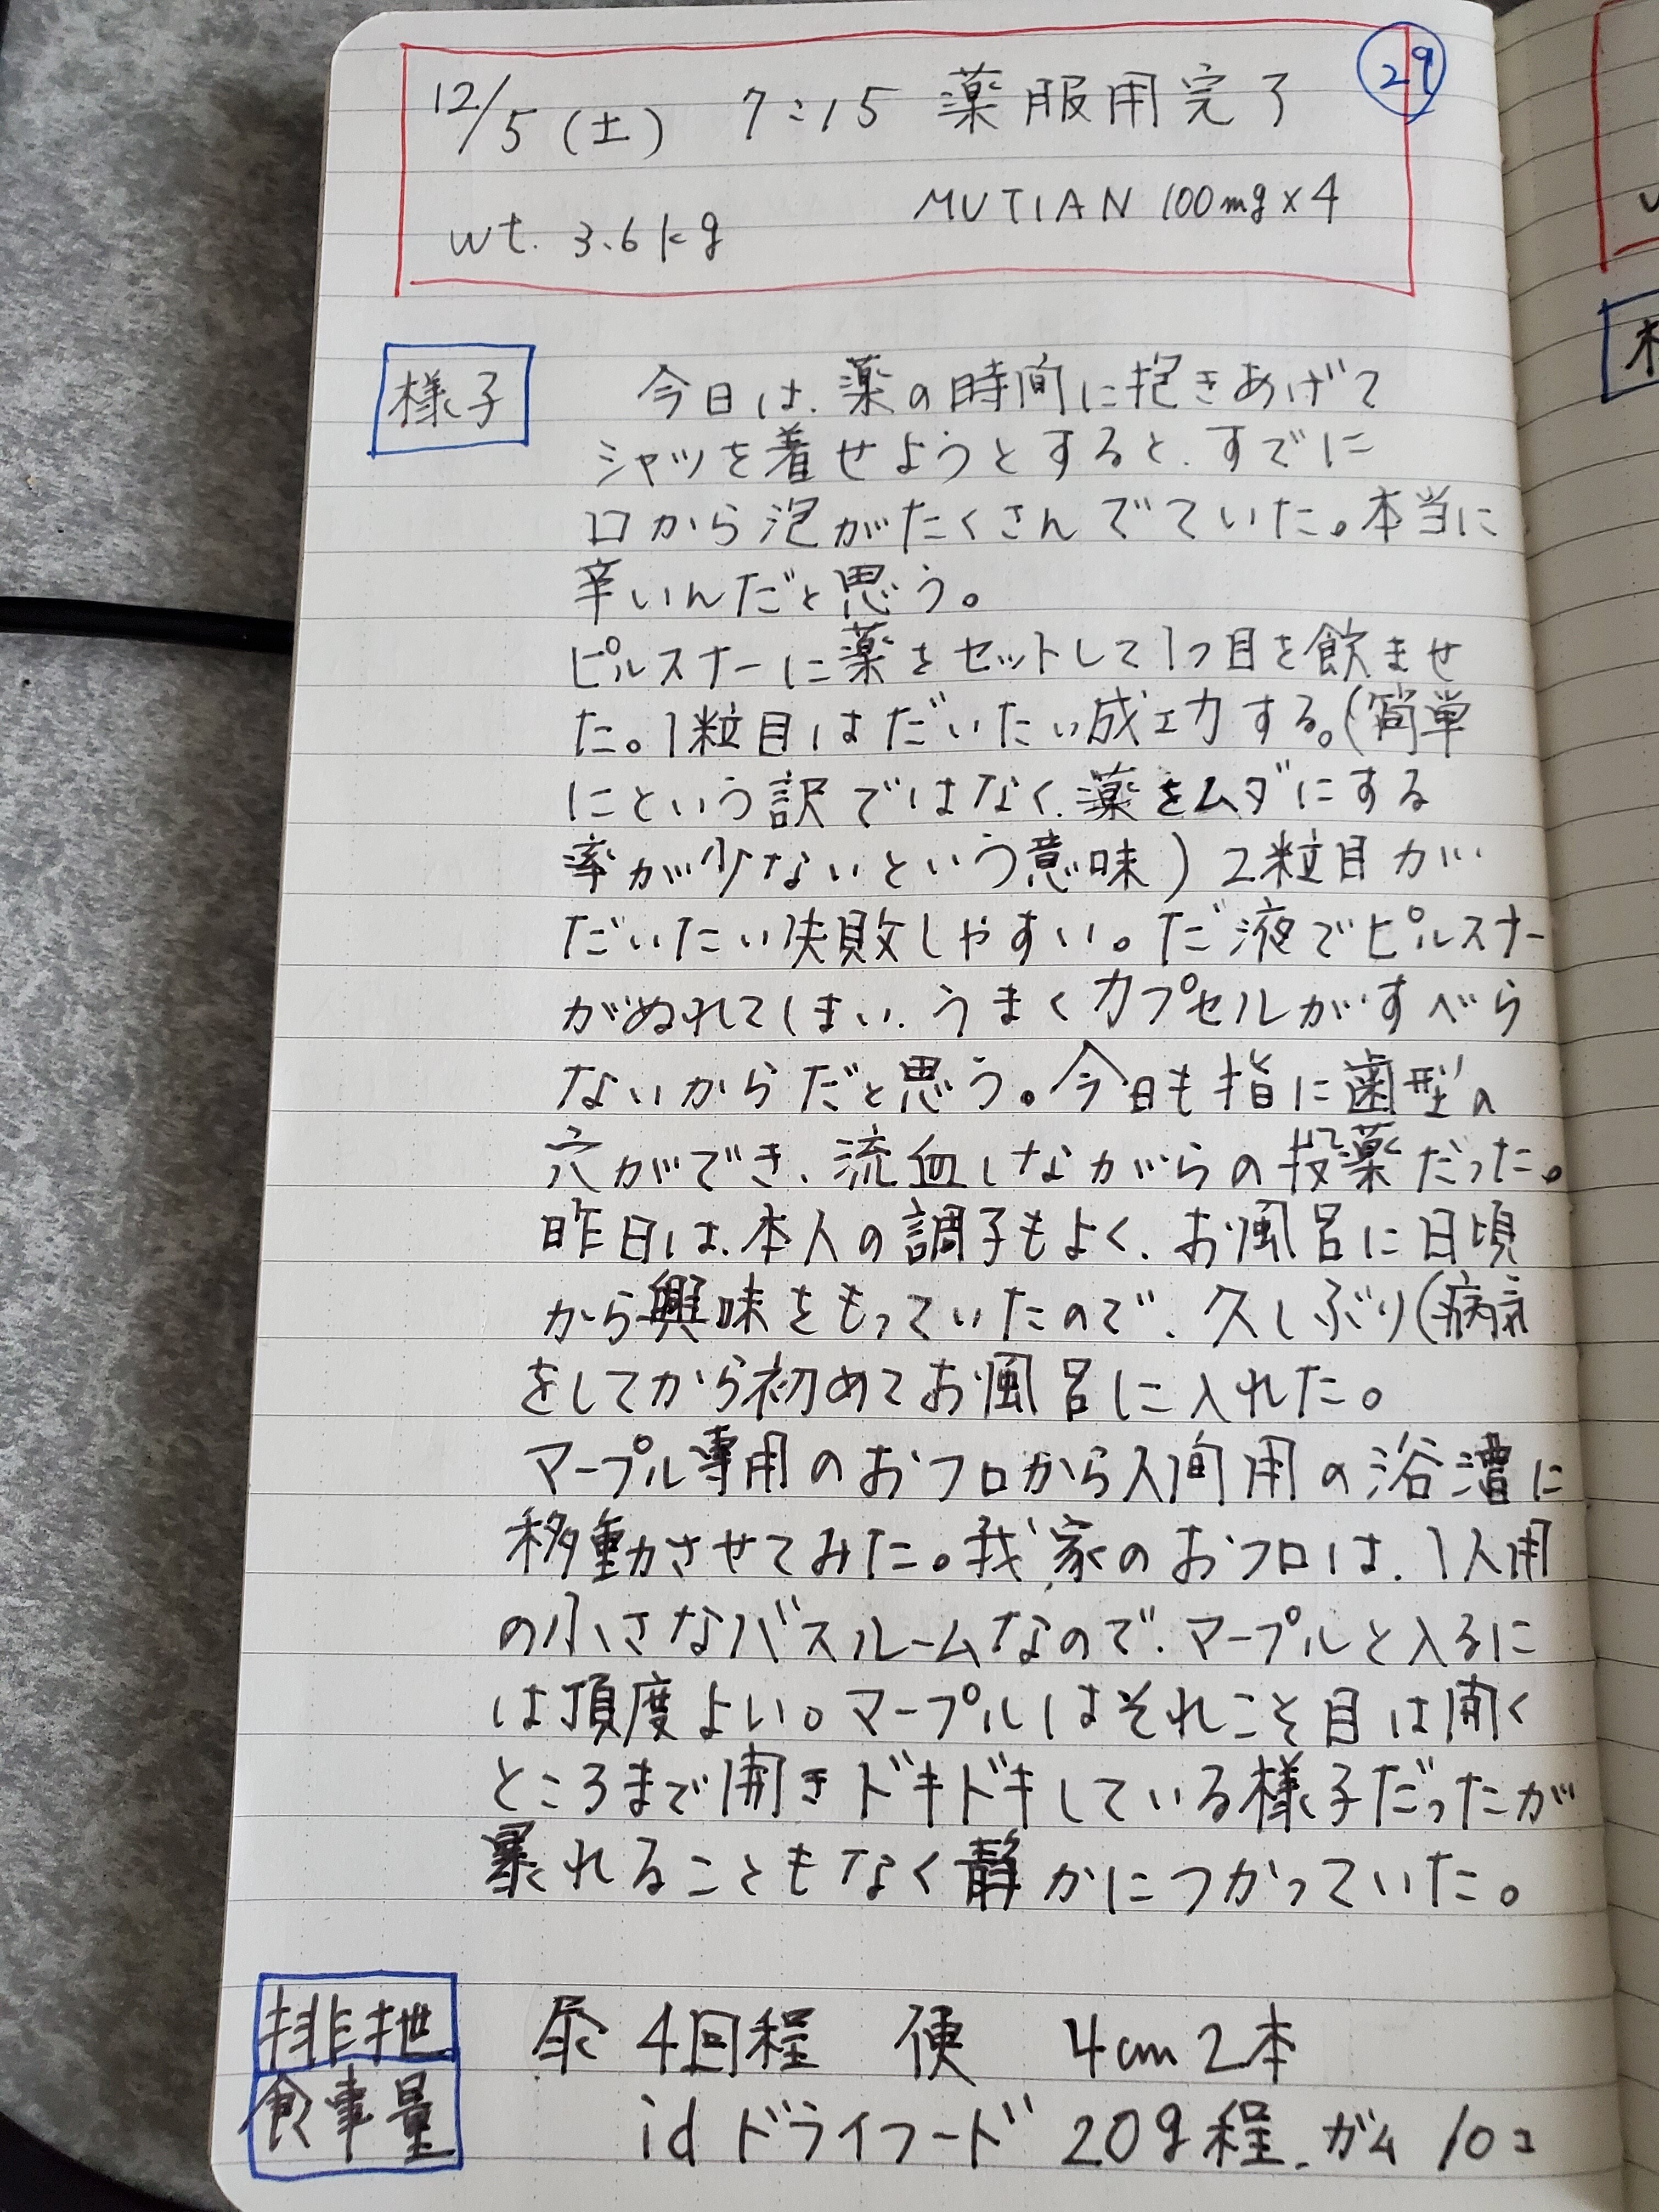 29
12/5(土) 7:15 薬服用完了
MUTIAN 100mg×4
wt. 3.6kg
様子
今日は、薬の時間に抱きあげて
シャツを着せようとすると、すでに
口から泡がたくさんでていた。本当に
辛いんだと思う。
ピルスナーに薬をセットして1つ目を飲ませ
た。1粒目はだいたい成功する。(簡単
にという訳ではなく、薬をムダにする
率が少ないという意味)2粒目が
だいたい失敗しやすい。だ液でピルスナー
がぬれてしまい、うまくカプセルがすべら
ないからだと思う。今日も指に歯型の
穴ができ、流血しながらの投薬だった。
昨日は、本人の調子もよく、お風呂に日頃
から興味をもっていたので、久しぶり(病気
をしてから初めてお風呂に入れた。
マープル専用のおフロから人間用の浴漕に
移動させてみた。我家のおフロは、1人用
の小さなバスルームなので、マープルと入るに
は頂度よい。マープルはそれこそ目は開く
ところまで開きドキドキしている様子だったが
暴れることもなく静かにつかっていた。
排泄 尿 4回程 便 4cm 2本
食事量 id ドライフード 20g程、ガム 10コ